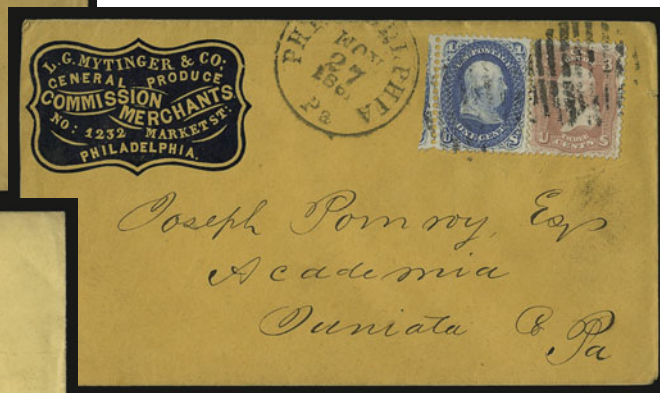 L. G. MYTINGER & CO:
GENERAL PRODUCE
COMMISSION
MERCHANTS
NO: 1232 MARKET ST:
PHILADELPHIA.
PHILADELPHIA
NOV
27
Pa
1 U.S. POSTAGE 1
ONE CENT
3
U THREE S
CENTS
Joseph Pomroy, Esq
Academia
Juniata Co
Pa